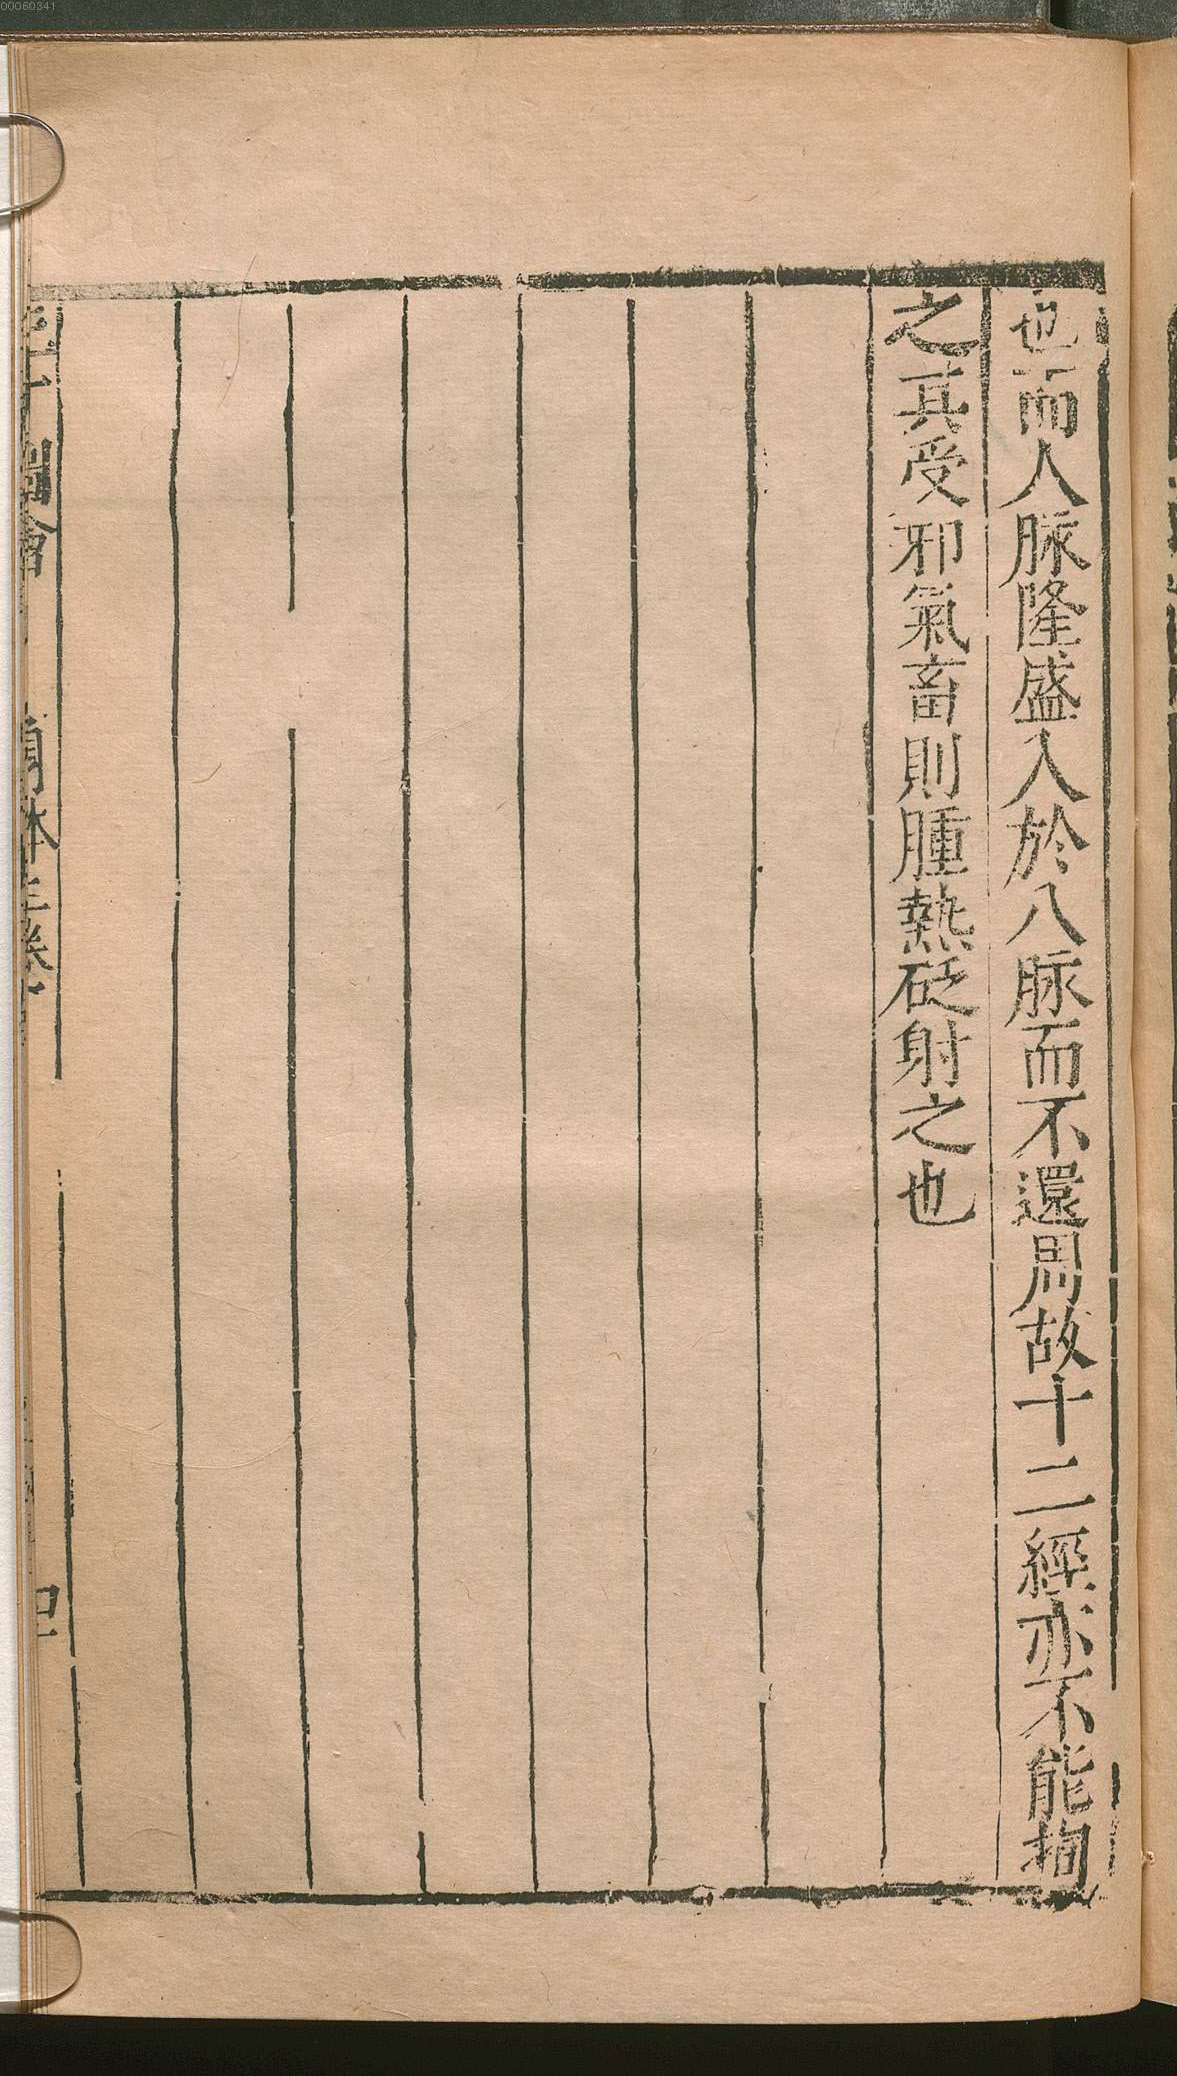 00060341
也而人脉隆盛入於八脉而不還周故十二經亦不能拘
之其受邪氣畜則腫熱砭射之也
圖會